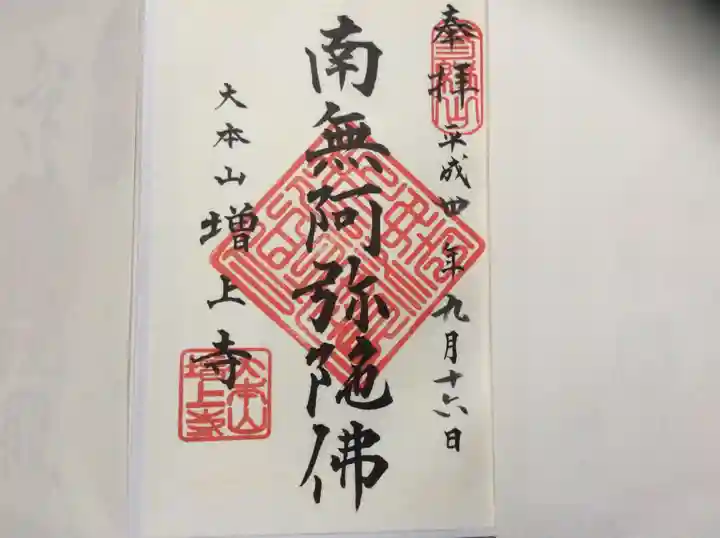 奉拝
平成四年九月十六日
南無阿弥陀佛
大本山増上寺
大本山
増上寺